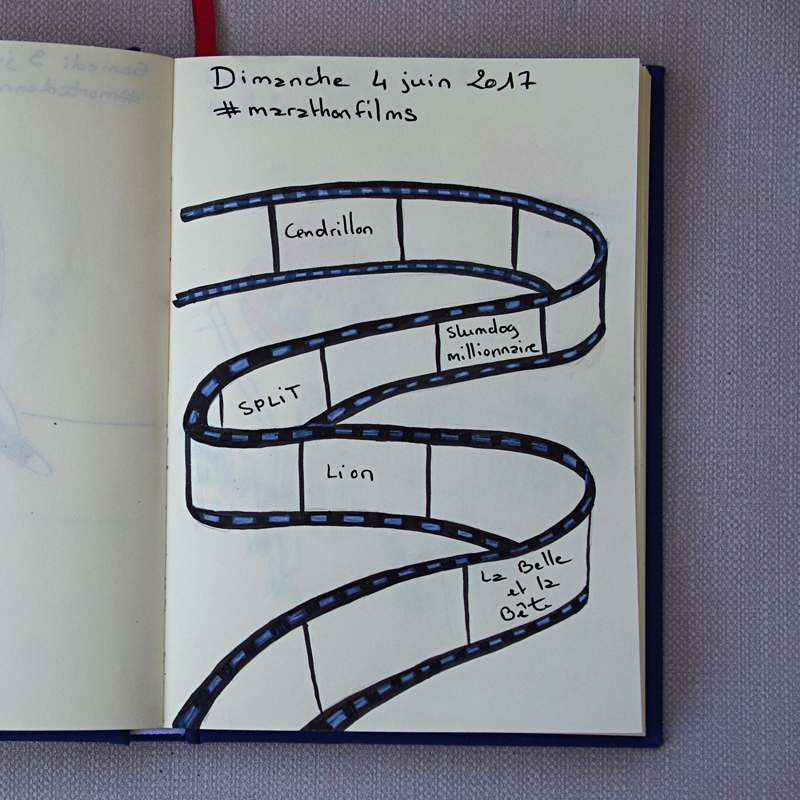 Dimanche 4 juin 2017
# marathonfilms
Cendrillon
Slumdog
millionnaire
SPLiT
Lion
La Belle
et la
Bête